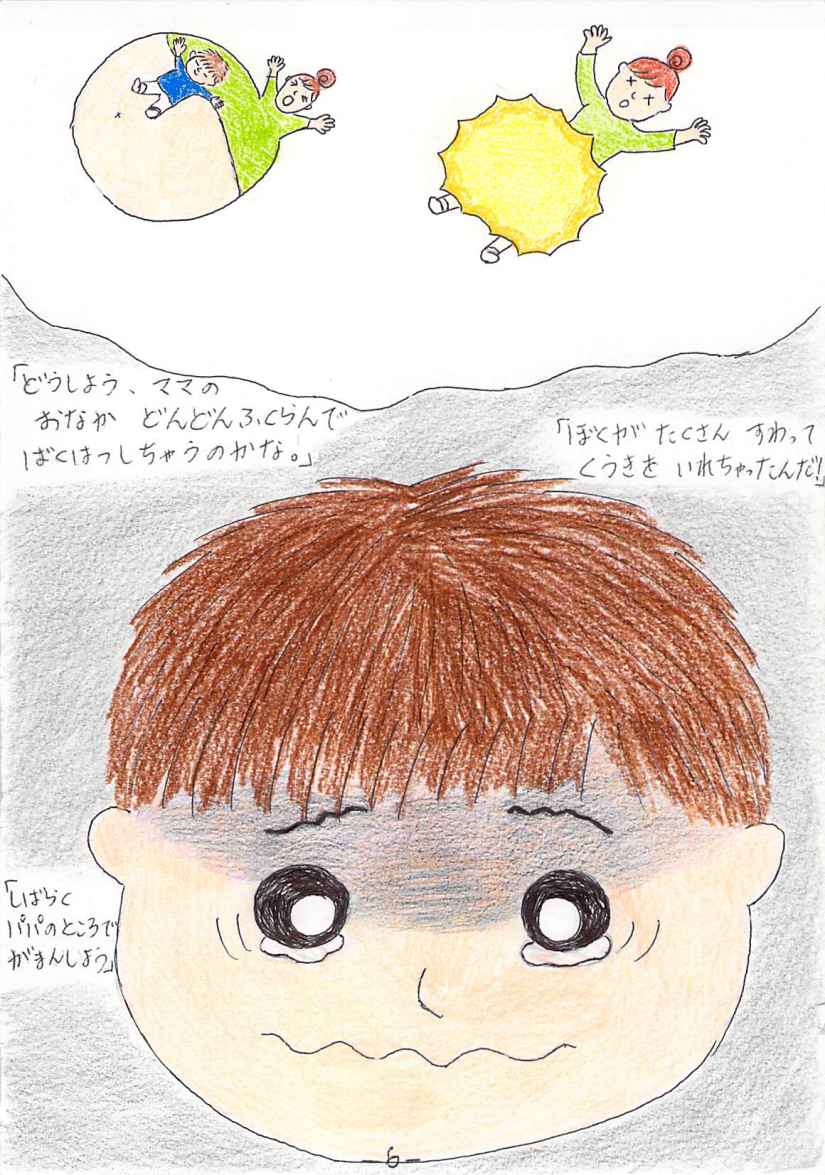 「どうしよう、ママの
おなか どんどんふくらんで
ばくはつしちゃうのかな。」
「ぼくが たくさん すわって
くうきを いれちゃったんだ!」
「しばらく
パパのところで
がまんしよう」
-6-